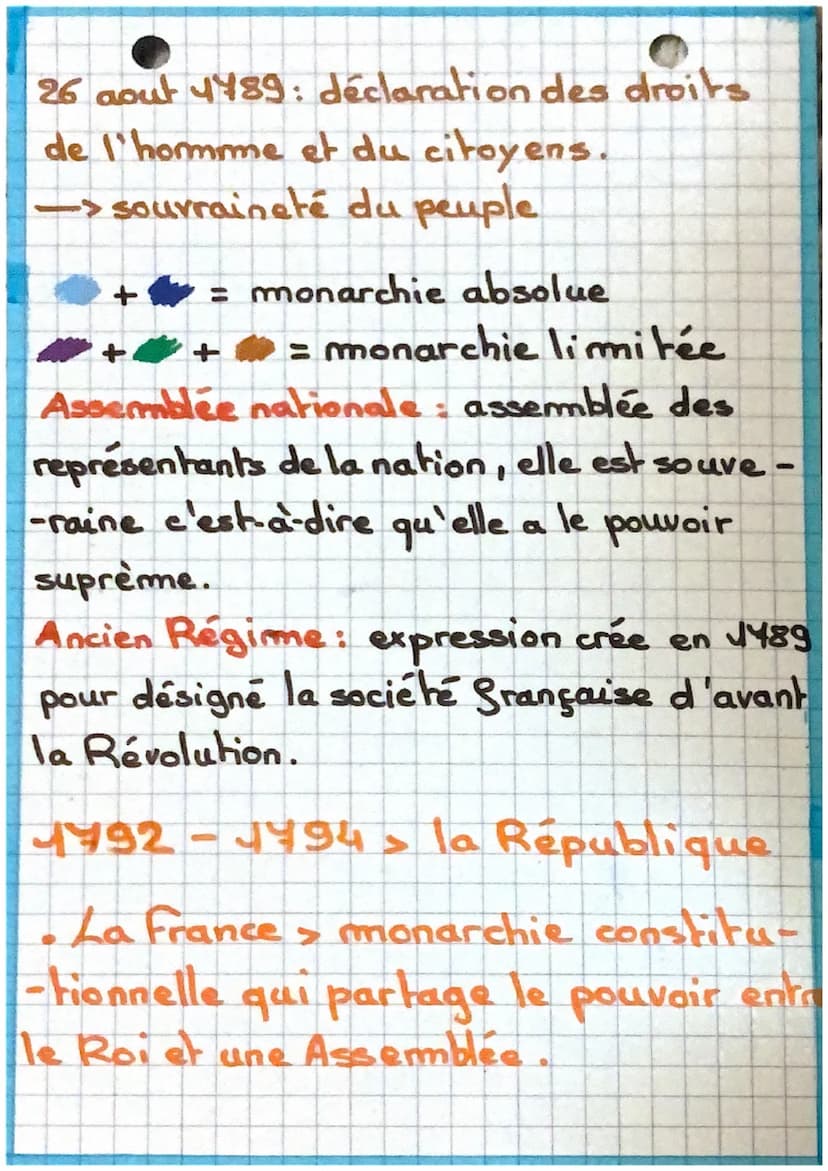 26 aout 1789: déclaration des droits
de l'homme et du citoyens.
—> souvraineté du peuple
+ = monarchie absolue
+ + = monarchie limitée
Assemblée nationale : assemblée des
représentants de la nation, elle est souve -
-raine c'est-à-dire qu'elle a le pouvoir
suprème.
Ancien Régime : expression crée en 1789
pour désigné la société française d'avant
la Révolution.
1792 - 1794 > la République
. La France > monarchie constitu-
-tionnelle qui partage le pouvoir entr
le Roi et une Assemblée.